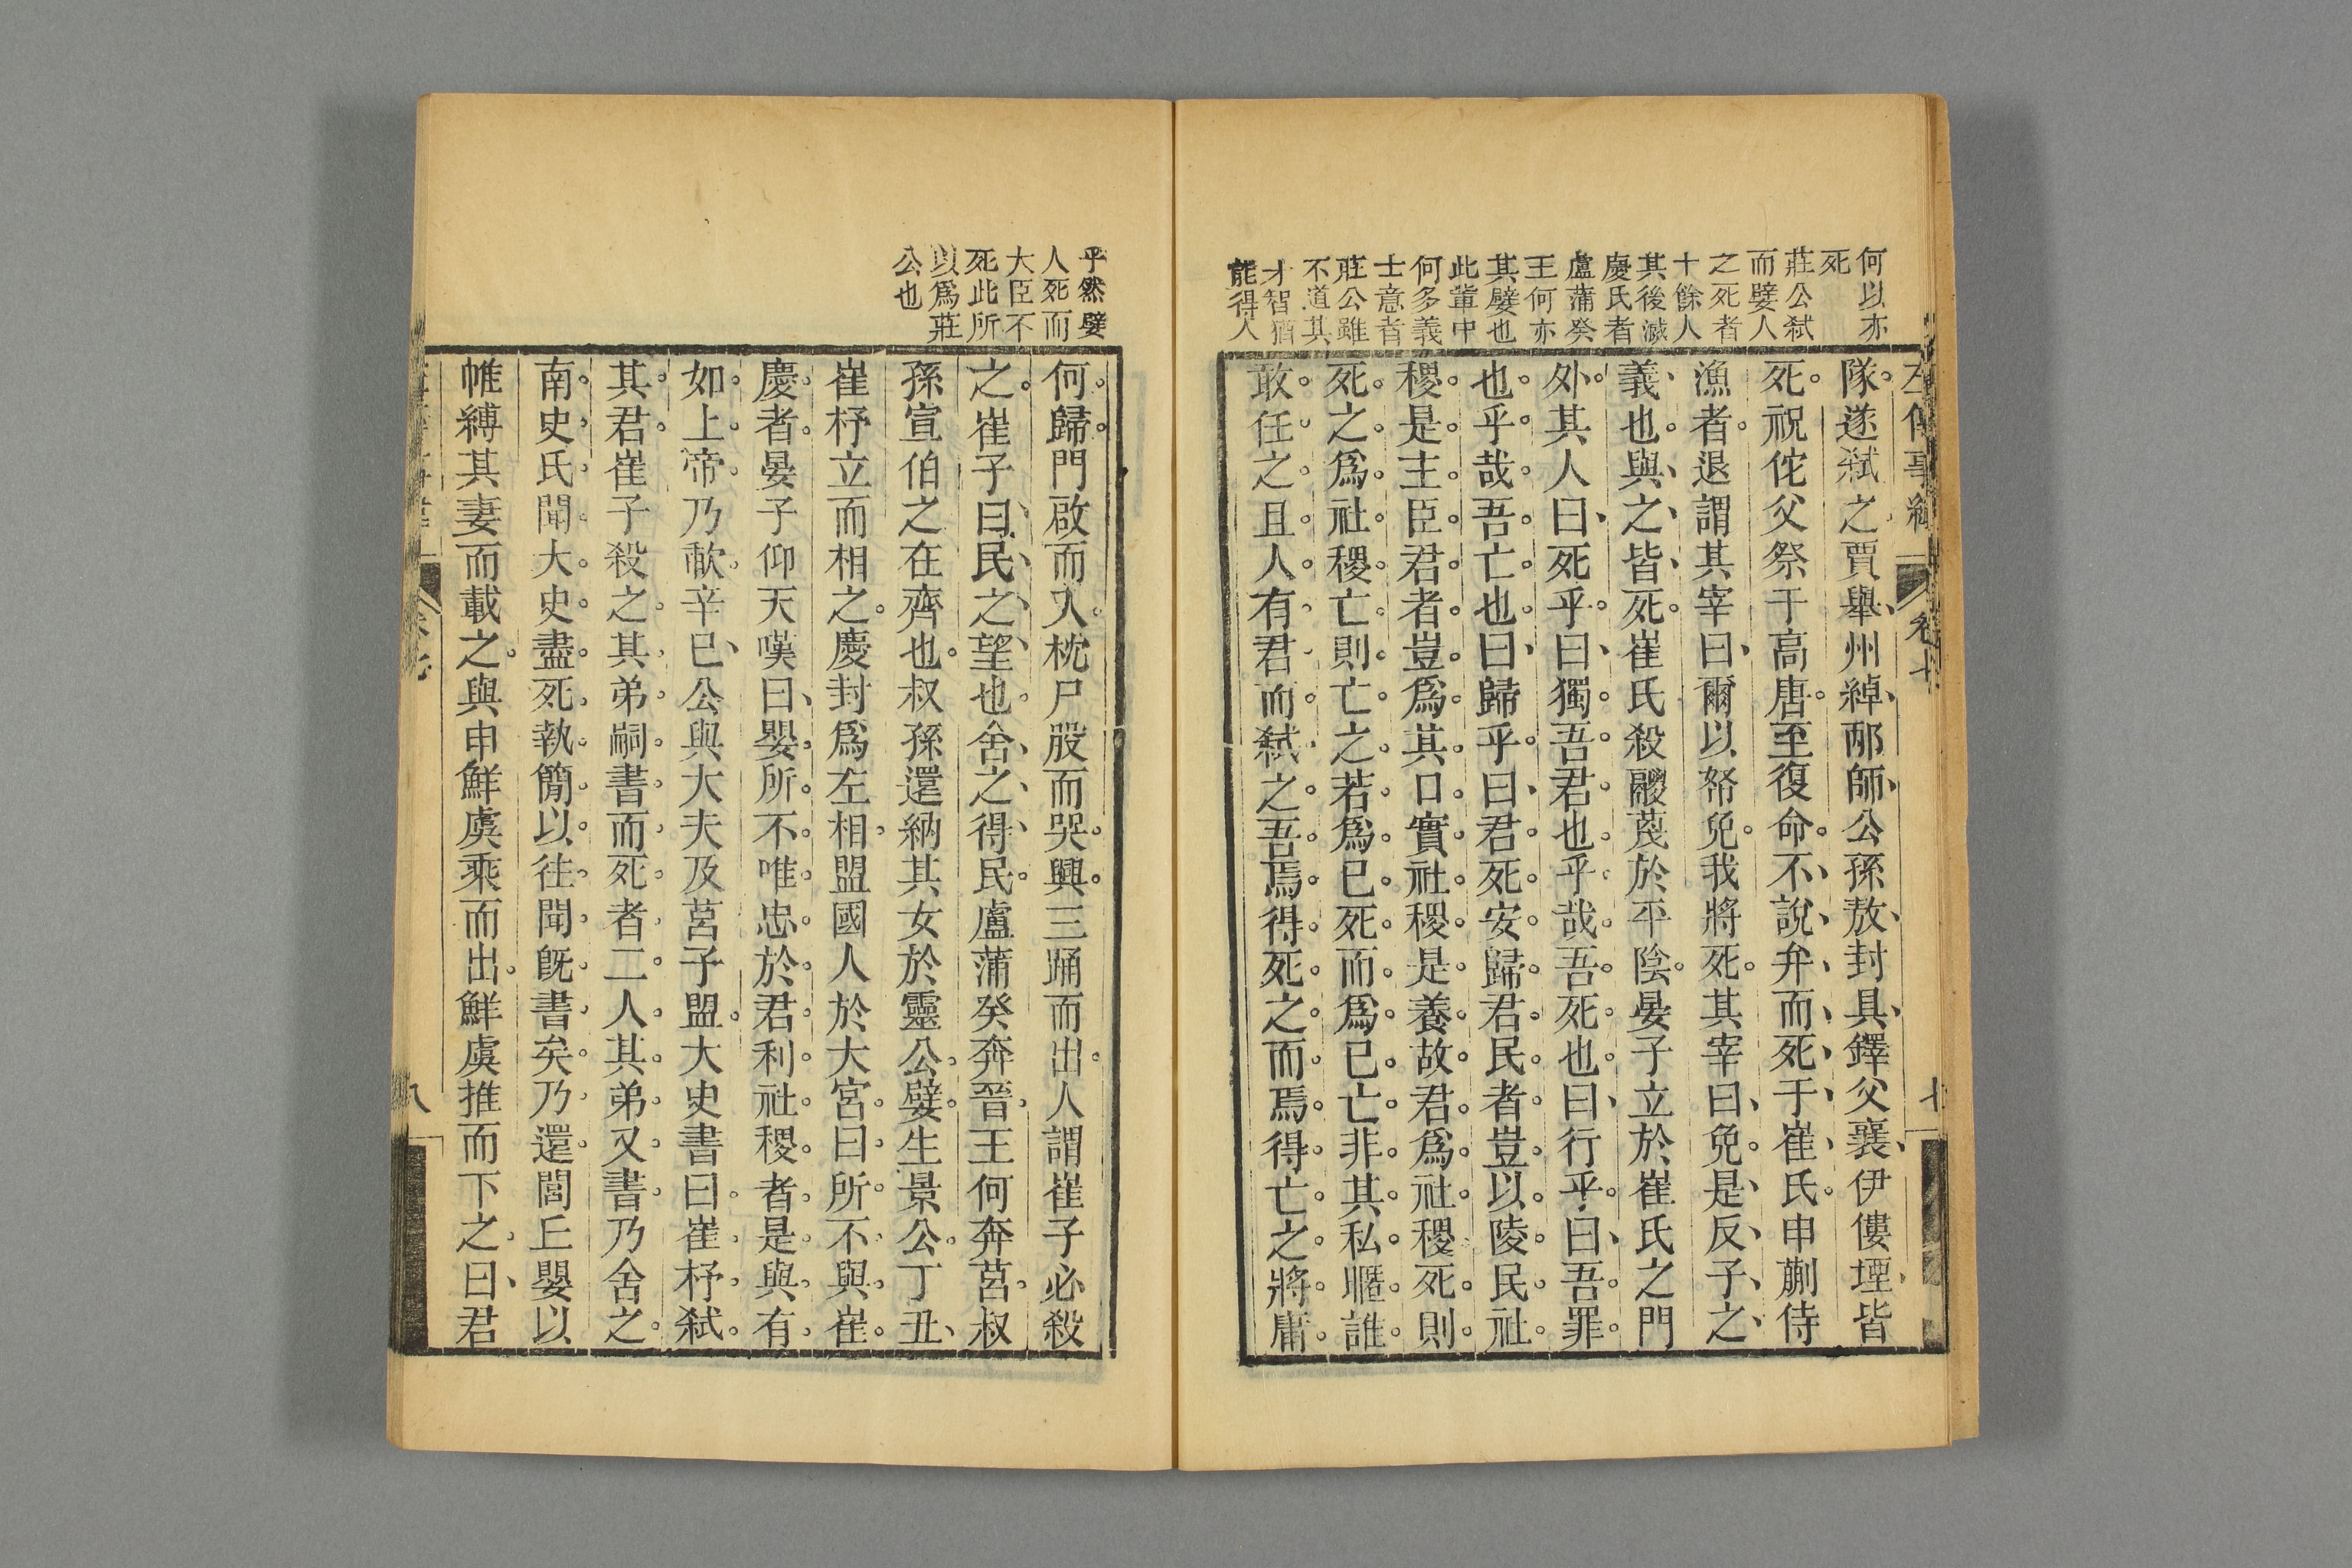 何以亦
死
莊公弑
而嬖人
之死者
十餘人
其後滅
慶氏者
盧蒲癸
王何亦
其嬖也
此輩中
何多義
士意者
莊公雖
不道其
才智猶
能得人
左傳事緯
卷七
七
隊遂弑之賈舉州綽邴師公孫敖封具鐸父襄伊僂堙皆
死祝佗父祭于高唐至復命不說弁而死于崔氏申蒯侍
漁者退謂其宰曰爾以帑免我將死其宰曰免是反子之
義也與之皆死崔氏殺鬷蔑於平陰晏子立於崔氏之門
外其人曰死乎曰獨吾君也乎哉吾死也曰行乎曰吾罪
也乎哉吾亡也曰歸乎曰君死安歸君民者豈以陵民社
稷是主臣君者豈爲其口實社稷是養故君爲社稷死則
死之爲社稷亡則亡之若爲已死而爲已亡非其私暱誰
敢任之且人有君而弑之吾焉得死之而焉得亡之將庸
乎然嬖
人死而
大臣不
死此所
以爲莊
公也
何歸門啟而入枕尸股而哭興三踊而出人謂崔子必殺
之崔子曰民之望也舍之得民盧蒲癸奔晉王何奔莒叔
孫宣伯之在齊也叔孫還納其女於靈公嬖生景公丁丑
崔杼立而相之慶封爲左相盟國人於大宮曰所不與崔
慶者晏子仰天嘆曰嬰所不唯忠於君利社稷者是與有
如上帝乃歃辛巳公與大夫及莒子盟大史書曰崔杼弑
其君崔子殺之其弟嗣書而死者二人其弟又書乃舍之
南史氏聞大史盡死執簡以往聞旣書矣乃還閭丘嬰以
帷縛其妻而載之與申鮮虞乘而出鮮虞推而下之曰君
八